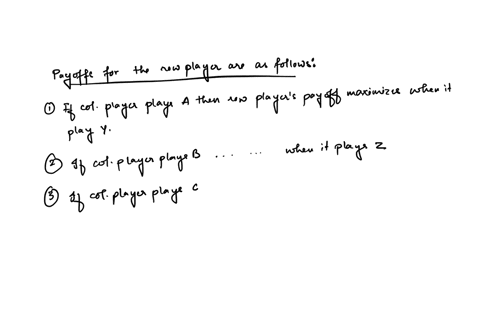 Payoffs for the row player are as follows:
① If col. player plays A then row player's payoff maximizes when it
play Y.
② If col. player plays B ... ... when it plays Z
③ If col. player plays C